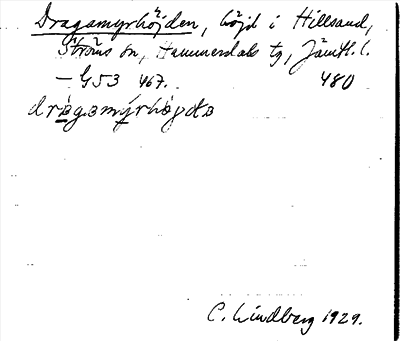 Dragamyrhöjden, höjd i Hillsand,
Ströms sn, Hammerdals tg, Jämtl. l.
— G53 467. 480
C. Lindberg 1929.